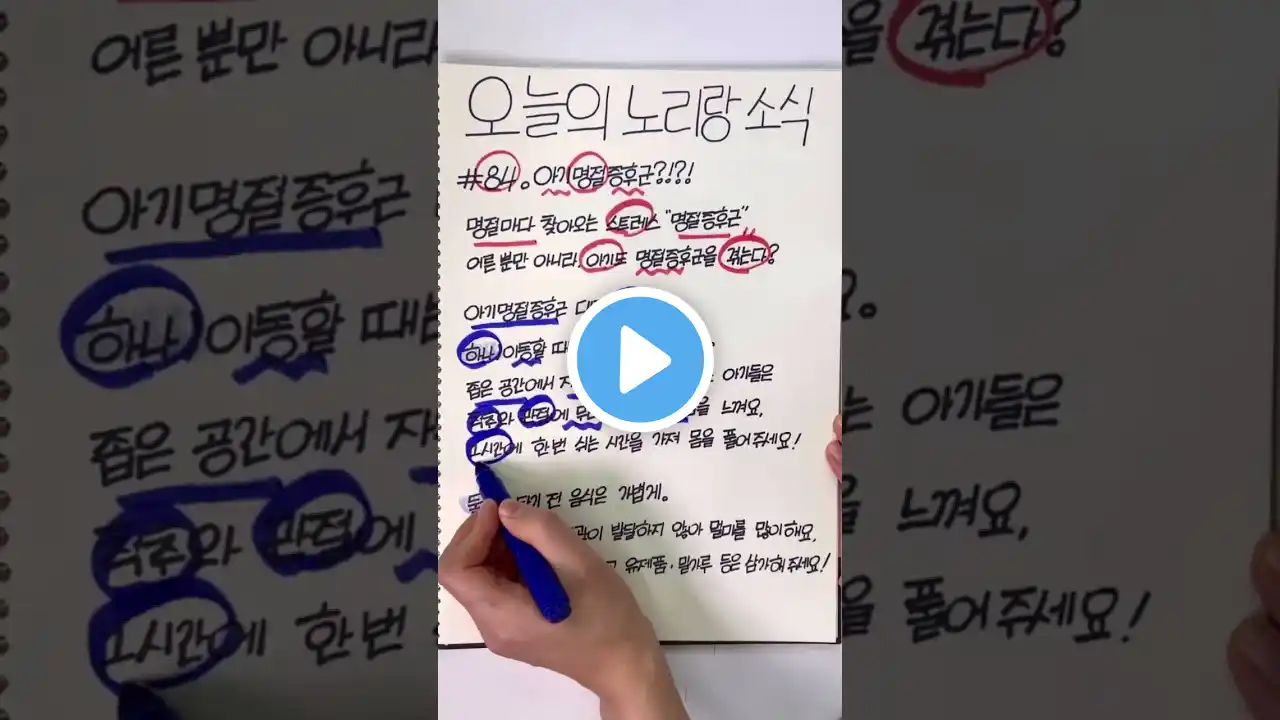 오늘의 노리랑 소식
#84. 아기명절증후군?!?!
명절마다 찾아오는 스트레스 "명절증후군"
어른 뿐만 아니라, 아기도 명절증후군을 겪는다?
아기명절증후군
하나, 이동할
좁은 공간에서 아기들은
척추와 관절에 느껴요,
1시간에 한 번 쉬는 시간을 가져 몸을 풀어주세요!
전 음식은 가볍게.
발달하지 않아 멀미를 많이해요,
유제품·밀가루 등은 삼가해주세요!